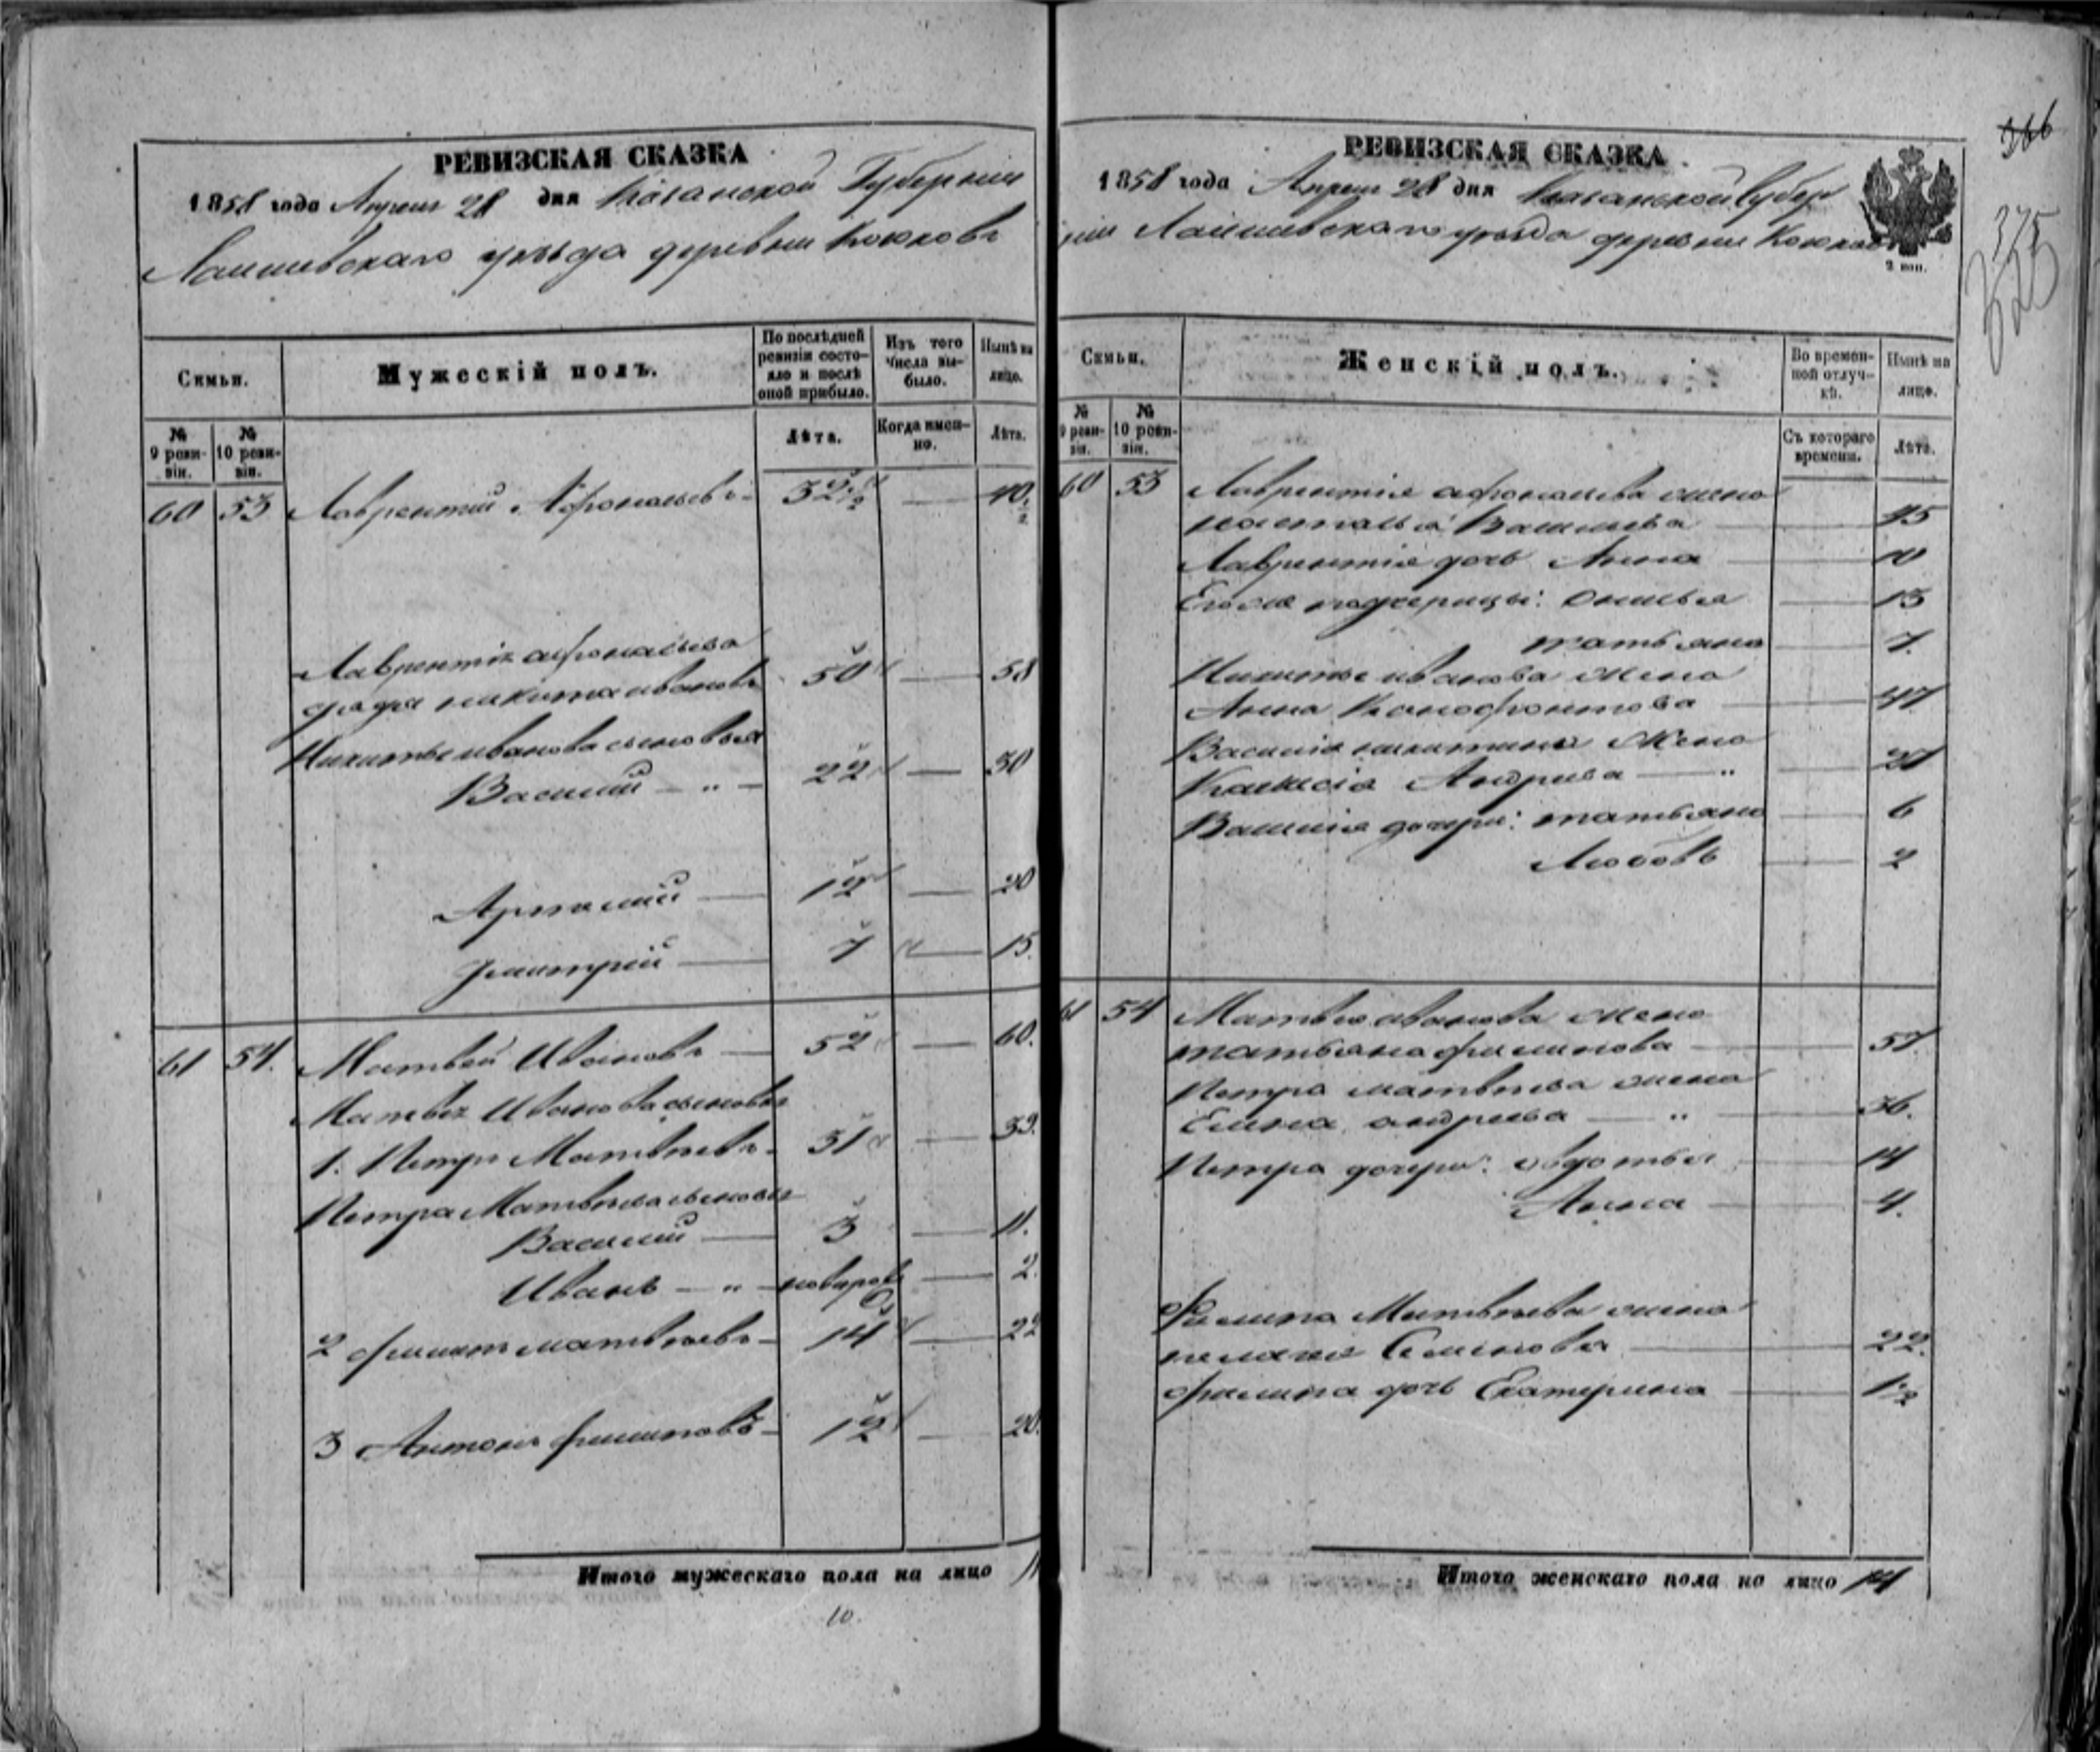 РЕВИЗСКАЯ СКАЗКА
1858 года Апреля 28 дня Казанской Губернии
Лаишевскаго уезда деревни Коковъ
Симьи.
Мужескiй полъ.
По послѣдней ревизiи состо-
яло и послѣ
оной прибыло.
Изъ того
числа вы-
было.
Нынѣ на
лицо.
№
9 реви-
зiи.
№
10 реви-
зiи.
Лѣта.
Когда имен-
но.
Лѣта.
60 53 Лаврентий Афонасьевъ 32½ — 40½
Лаврентiя афонасьева
дядя никита ивановъ 50 — 58
Никиты иванова сыновья
Василий — " — 22 — 30
Арталий — 12 — 20
Дмитрий — 7 — 15.
61 54. Матвей Ивановъ — 52 — 60.
Матвея Иванова сыновья
1. Петръ Матвѣевъ 31 — 39.
Петра Матвѣева сыновья
Василий — 3 — 11.
Иванъ — " — новорож — 2.
2 филипъ матвѣевъ 14 — 22
3 Антонъ филиповъ 12 — 20.
Итого мужескаго пола на лицо 11
10.
РЕВИЗСКАЯ СКАЗКА
1858 года Апреля 28 дня Казанской Губер
нии Лаишевскаго уезда деревни
2 коп.
366
375
325
Симьи.
Женскiй полъ.
Во времен-
ной отлуч-
кѣ.
Нынѣ на
лицо.
№
9 реви-
зiи.
№
10 реви-
зiи.
Съ котораго
времени.
Лѣта.
60 53 Лаврентiя афонасьева жена
настасья Васильева — 45
Лаврентiя дочь Анна — 10
Евоже падчерицы: — 13
татьяна — 7.
Никиты иванова жена
Анна — 47
Василiя никитина Жена
Андриева — " — 27
Василiя дочери: татьяна — 6
Любовь — 2
61 54 Матвея иванова жена
татьяна филипова — 57.
Петра матвѣева жена
Елена андриева — " — 36.
Петра дочери: авдотья — 14
Анна — 4.
Филипа Матвѣева жена
пелагея Семенова — 22.
филипа дочь Екатерина — 1½
Итого женскаго пола на лицо 14